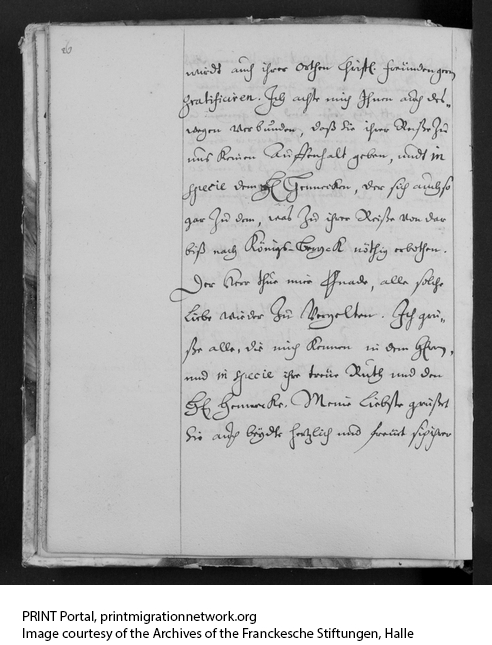 wirdt auch ihrer Orthen Christl. Freunden gern
gratificiren. Ich achte mich Ihnen auch des-
wegen verbunden, daß sie ihrer Reiße zu
uns keinen Auffenhalt geben, undt in
specie dem H. Hennecken, der sich auch so
gar zu dem, was zu ihrer Reiße von dar
biß nach Königs-Bergk nöthig erbothen.
Der Herr thue mir Gnade, alle solche
Liebe wieder zu Vergelten. Ich grü-
ße alle, die mich kennen in dem Herrn,
und in specie ihre treue Ruth und den
H. Hennecke. Meine Liebste grüßet
sie auch beyde hertzlich und freuet sich ihrer
PRINT Portal, printmigrationnetwork.org
Image courtesy of the Archives of the Franckesche Stiftungen, Halle